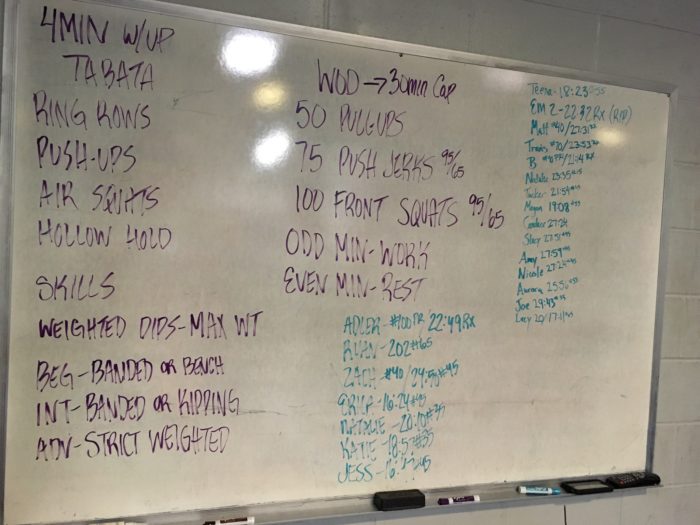 4 MIN W/UP
TABATA
RING ROWS
PUSH-UPS
AIR SQUATS
HOLLOW HOLD
SKILLS
WEIGHTED DIPS-MAX WT
BEG-BANDED OR BENCH
INT-BANDED OR KIPPING
ADV-STRICT WEIGHTED
WOD → 30min Cap
50 PULLUPS
75 PUSH JERKS 95/65
100 FRONT SQUATS 95/65
ODD MIN-WORK
EVEN MIN-REST
ADLER-#100 PR 22:49 RX
RYAN-202 #65
ZACH-#40/24:50 #95
ERICA-16:24 #45
NATALIE-20:10 #35
KATIE-18:57 #35
JESS-16:
Teena-18:23 #55
EM 2-22:32 RX
Matt #40/27:31
Travis #70/23:53 RX
B
Natalie 23:35
Tucker 21:54
Megan 19:08 #55
Candace 27:24
Stacy 27:51
Amy 27:59
Nicole 27:24
Aurora 25:56
Joe 29:43
Lacy 20/17:11